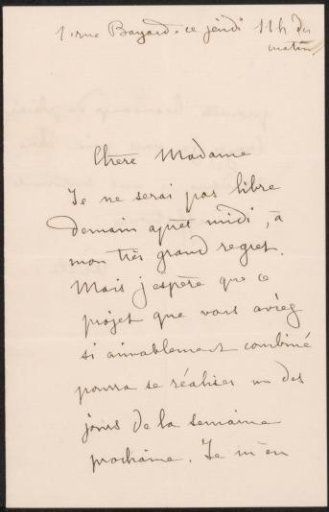 1, rue Bayard. ce jeudi 11h du
matin
Chère Madame
Je ne serai pas libre
demain après midi, à
mon très grand regret.
Mais j'espère que ce
projet que vous aviez
si aimablement combiné
pourra se réaliser un des
jours de la semaine
prochaine. Je m'en